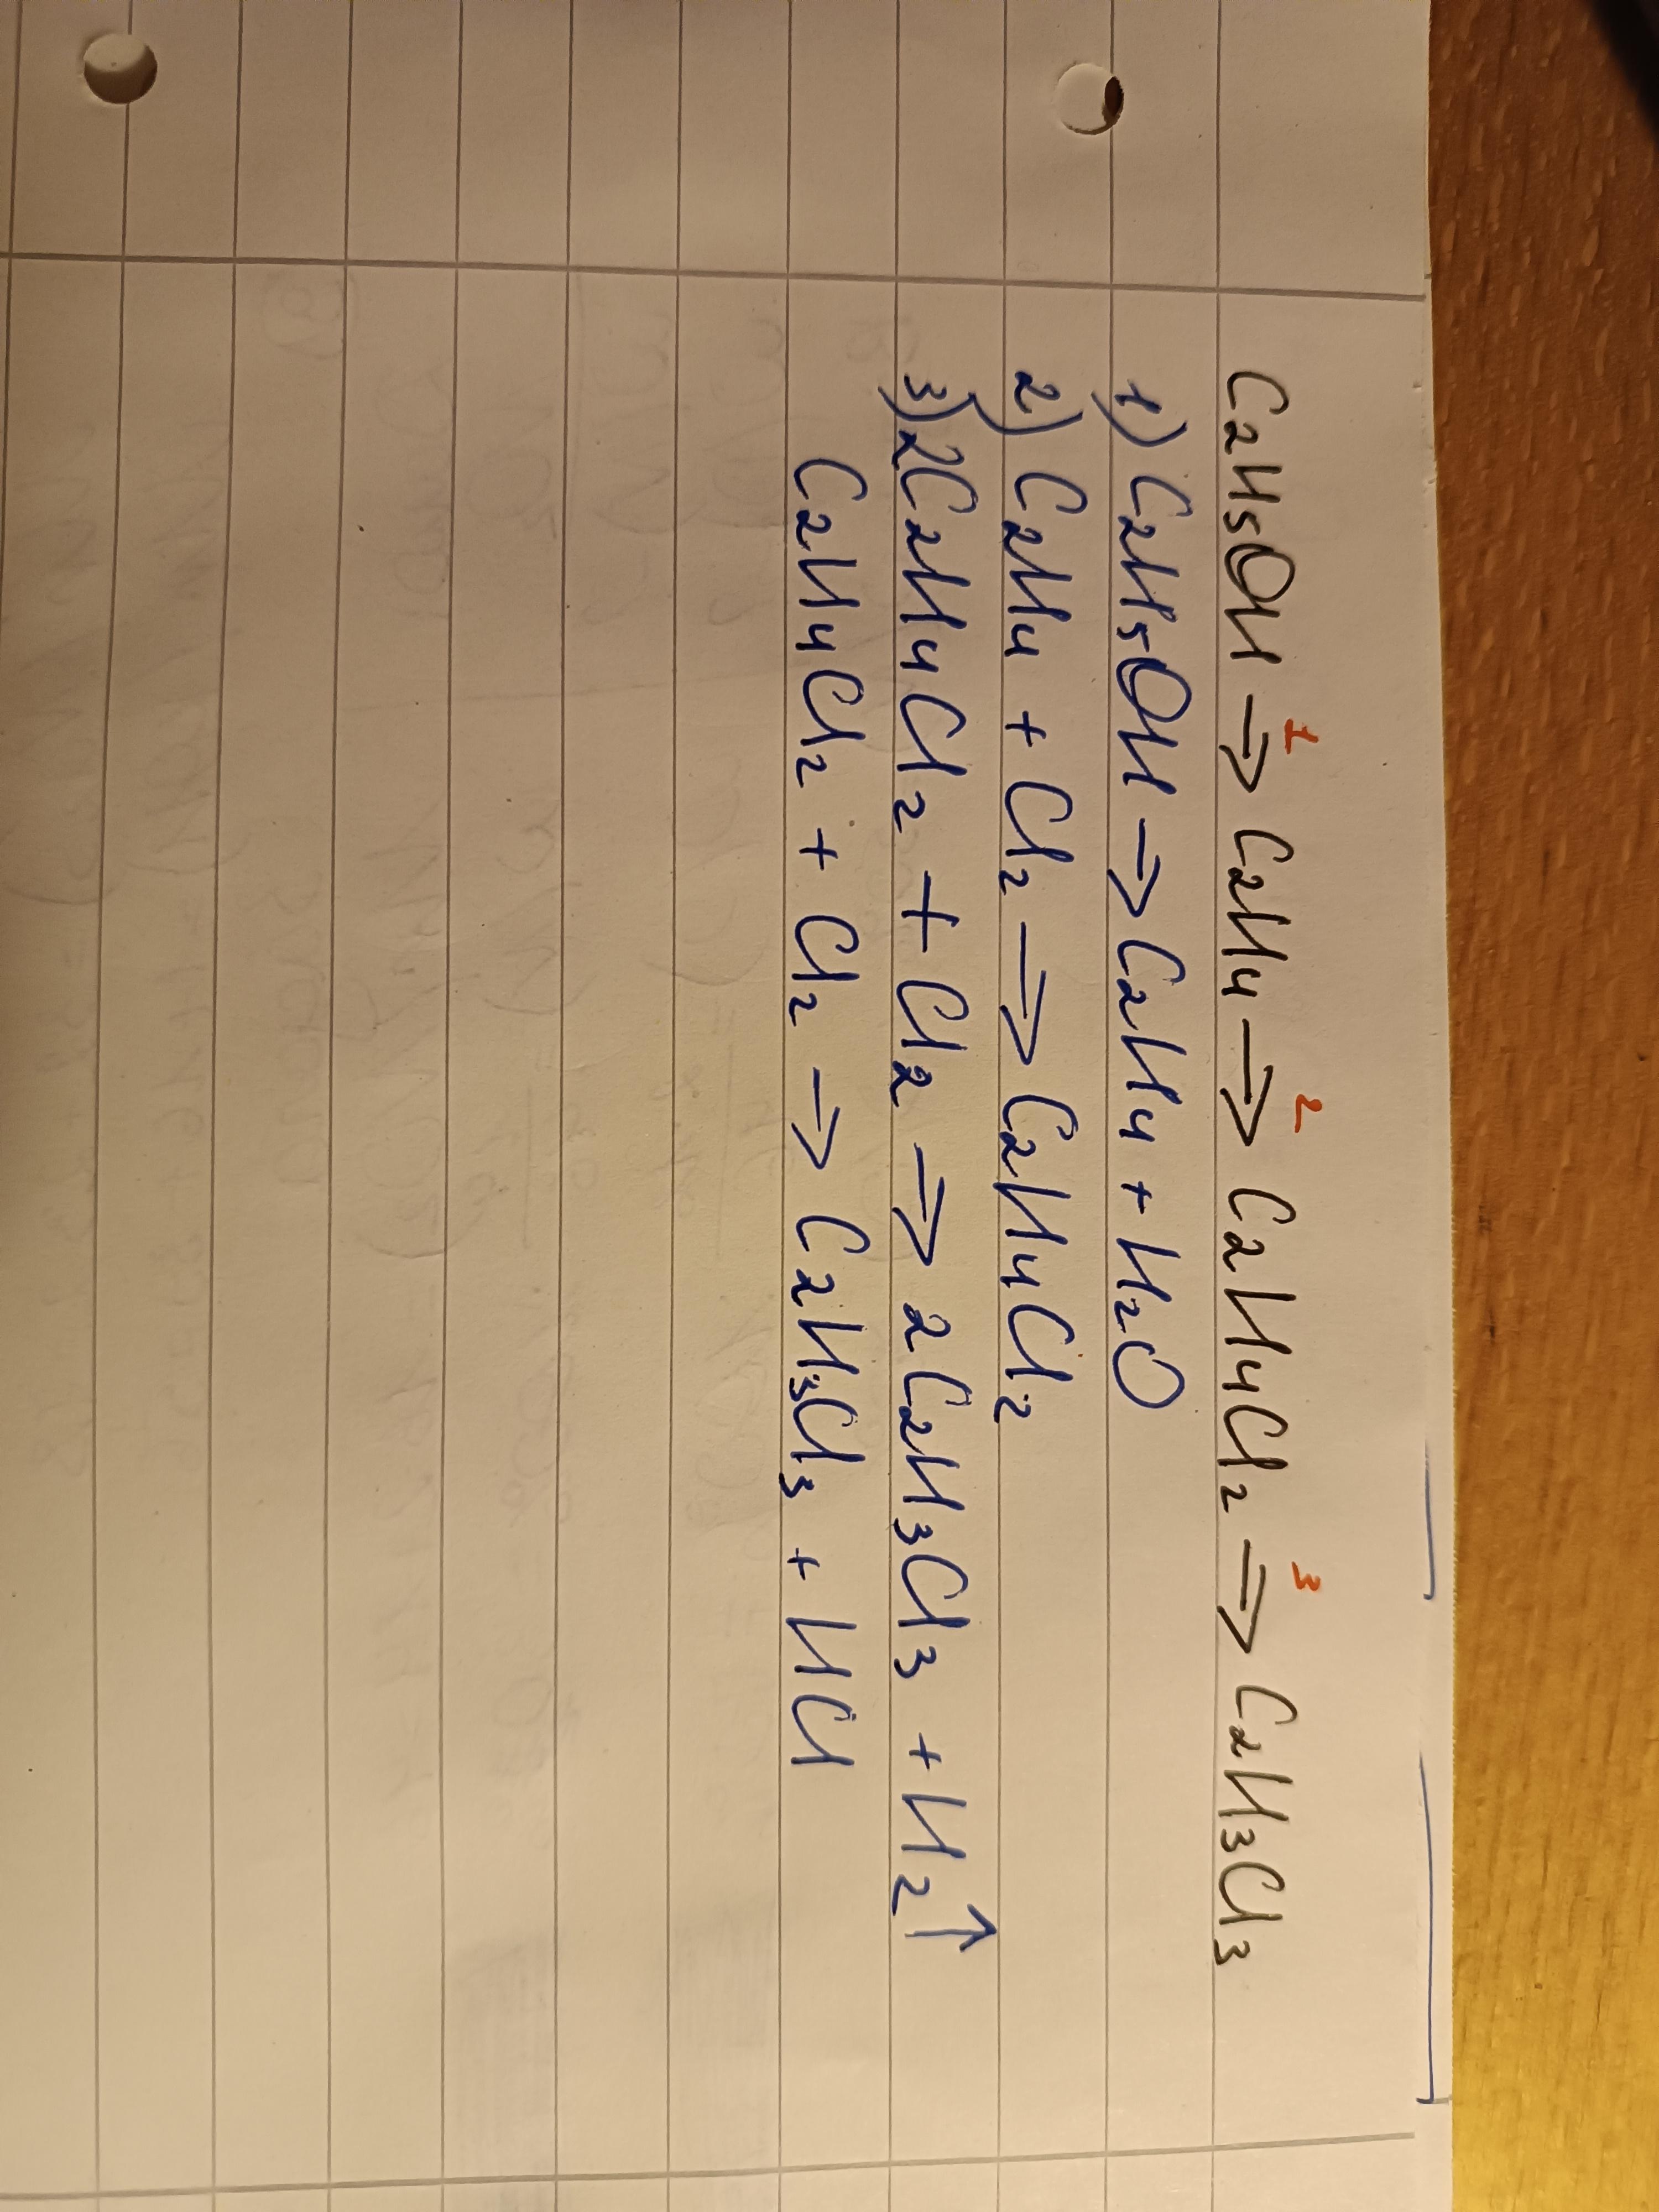 C2H5OH ⇒1 C2H4 ⇒2 C2H4Cl2 ⇒3 C2H3Cl3
1) C2H5OH ⇒ C2H4 + H2O
2) C2H4 + Cl2 ⇒ C2H4Cl2
3) 2C2H4Cl2 + Cl2 ⇒ 2C2H3Cl3 + H2↑
C2H4Cl2 + Cl2 ⇒ C2H3Cl3 + HCl